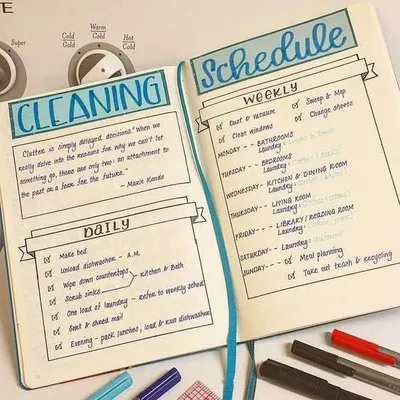 TE
Super
Cold/Cold
Warm/Cold
Hot/Cold
CLEANING
"Clutter is simply delayed decisions." When we
really delve into the reasons for why we can't let
something go, there are only two: an attachment to
the past or a fear for the future."
- Marie Kondo
DAILY
Make bed
Unload dishwasher - A.M.
Wipe down countertops
Scrub sinks
Kitchen & Bath
One load of laundry - refer to weekly sched.
Sort & shred mail
Evening - pack lunches, load & run dishwasher
Schedule
WEEKLY
Dust & vacuum
Sweep & Mop
Clean windows
Change sheets
MONDAY - - BATHROOMS
Laundry:
TUESDAY - - BEDROOMS
Laundry:
WEDNESDAY - KITCHEN & DINING ROOM
Laundry:
THURSDAY - - LIVING ROOM
Laundry:
FRIDAY - - LIBRARY/READING ROOM
Laundry:
SATURDAY - - Laundry:
SUNDAY - - - Meal planning
Take out trash & recycling